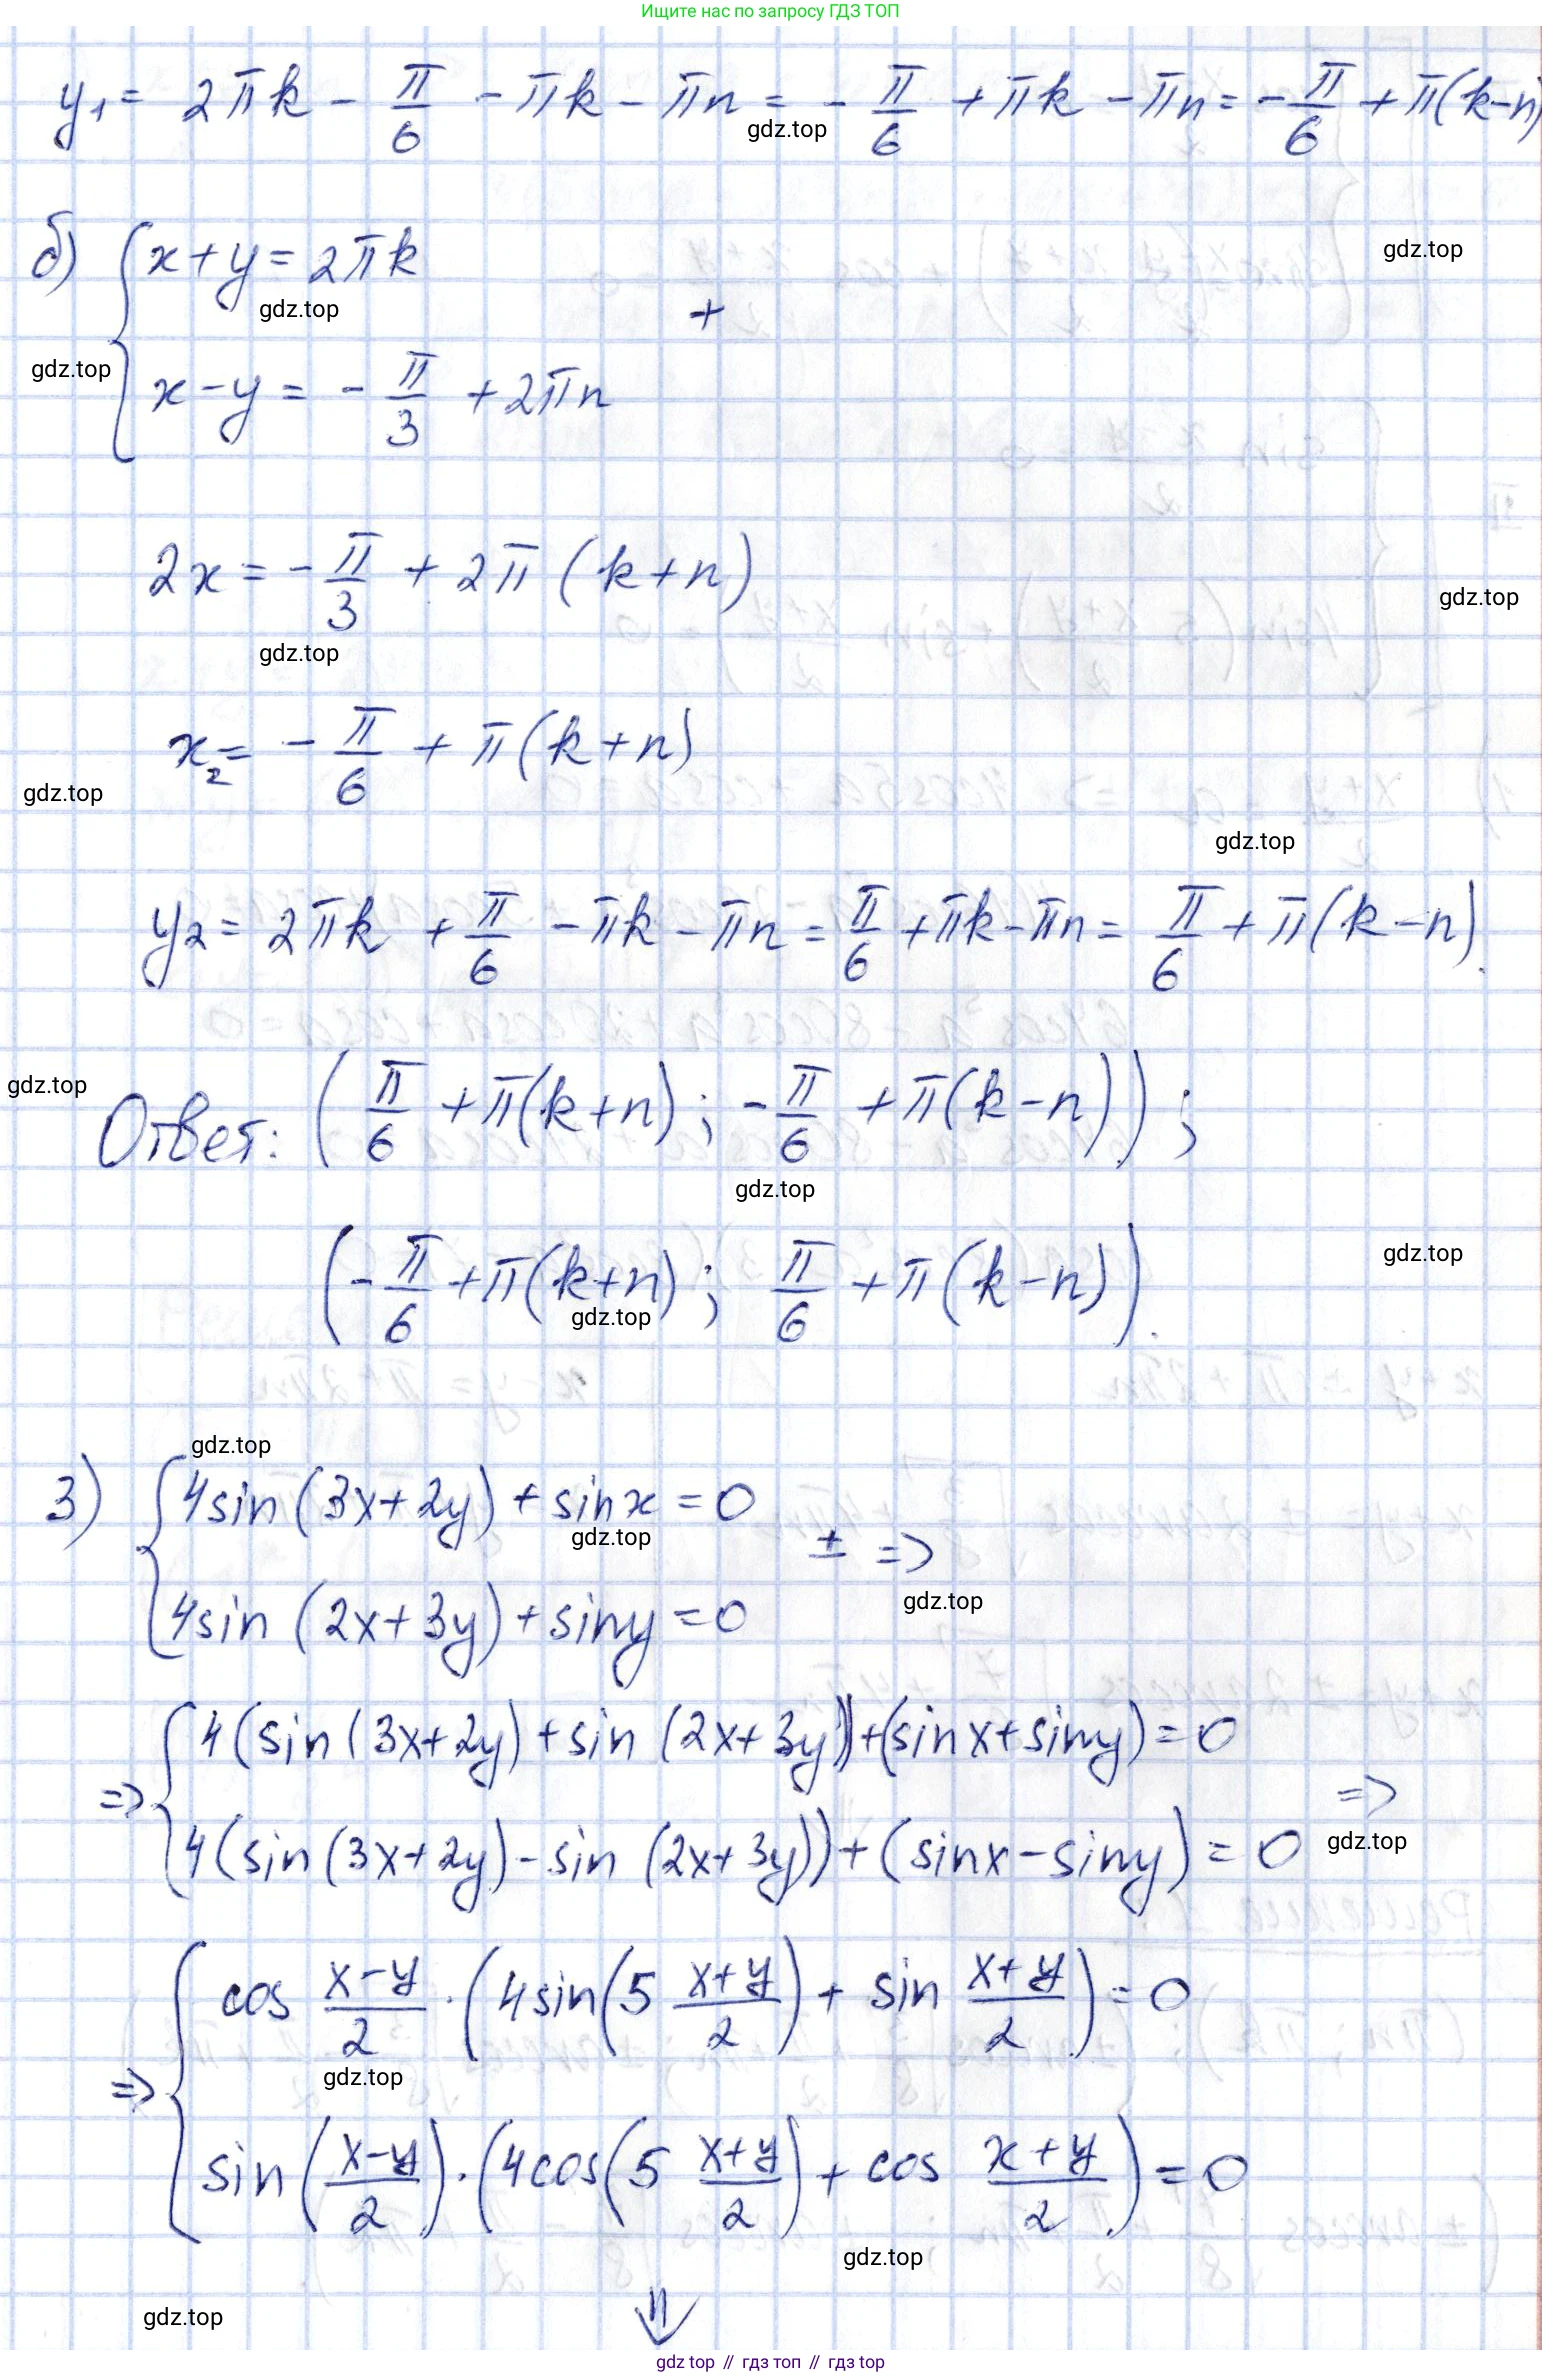 Ищите нас по запросу ГДЗ ТОП
y₁ = 2πk - π/6 - πk - πn = - π/6 + πk - πn = - π/6 + π(k-n)
gdz.top
б) { x+y = 2πk
gdz.top
gdz.top
+
gdz.top
x-y = - π/3 + 2πn
2x = - π/3 + 2π (k+n)
gdz.top
gdz.top
x₂ = - π/6 + π(k+n)
gdz.top
gdz.top
y₂ = 2πk + π/6 - πk - πn = π/6 + πk - πn = π/6 + π(k-n).
gdz.top
Ответ: (π/6 + π(k+n); - π/6 + π(k-n));
gdz.top
gdz.top
(- π/6 + π(k+n); π/6 + π(k-n)).
gdz.top
gdz.top
3) { 4sin (3x+2y) + sin x = 0
gdz.top
± =>
gdz.top
4sin (2x+3y) + sin y = 0
=> { 4(sin (3x+2y) + sin (2x+3y)) + (sin x + sin y) = 0
=>
4(sin (3x+2y) - sin (2x+3y)) + (sin x - sin y) = 0
gdz.top
=> { cos (x-y)/2 · (4sin(5 (x+y)/2) + sin (x+y)/2) = 0
gdz.top
sin((x-y)/2) · (4cos(5 (x+y)/2) + cos (x+y)/2) = 0
gdz.top
⇓
gdz.top
gdz top // гдз топ // гдз top